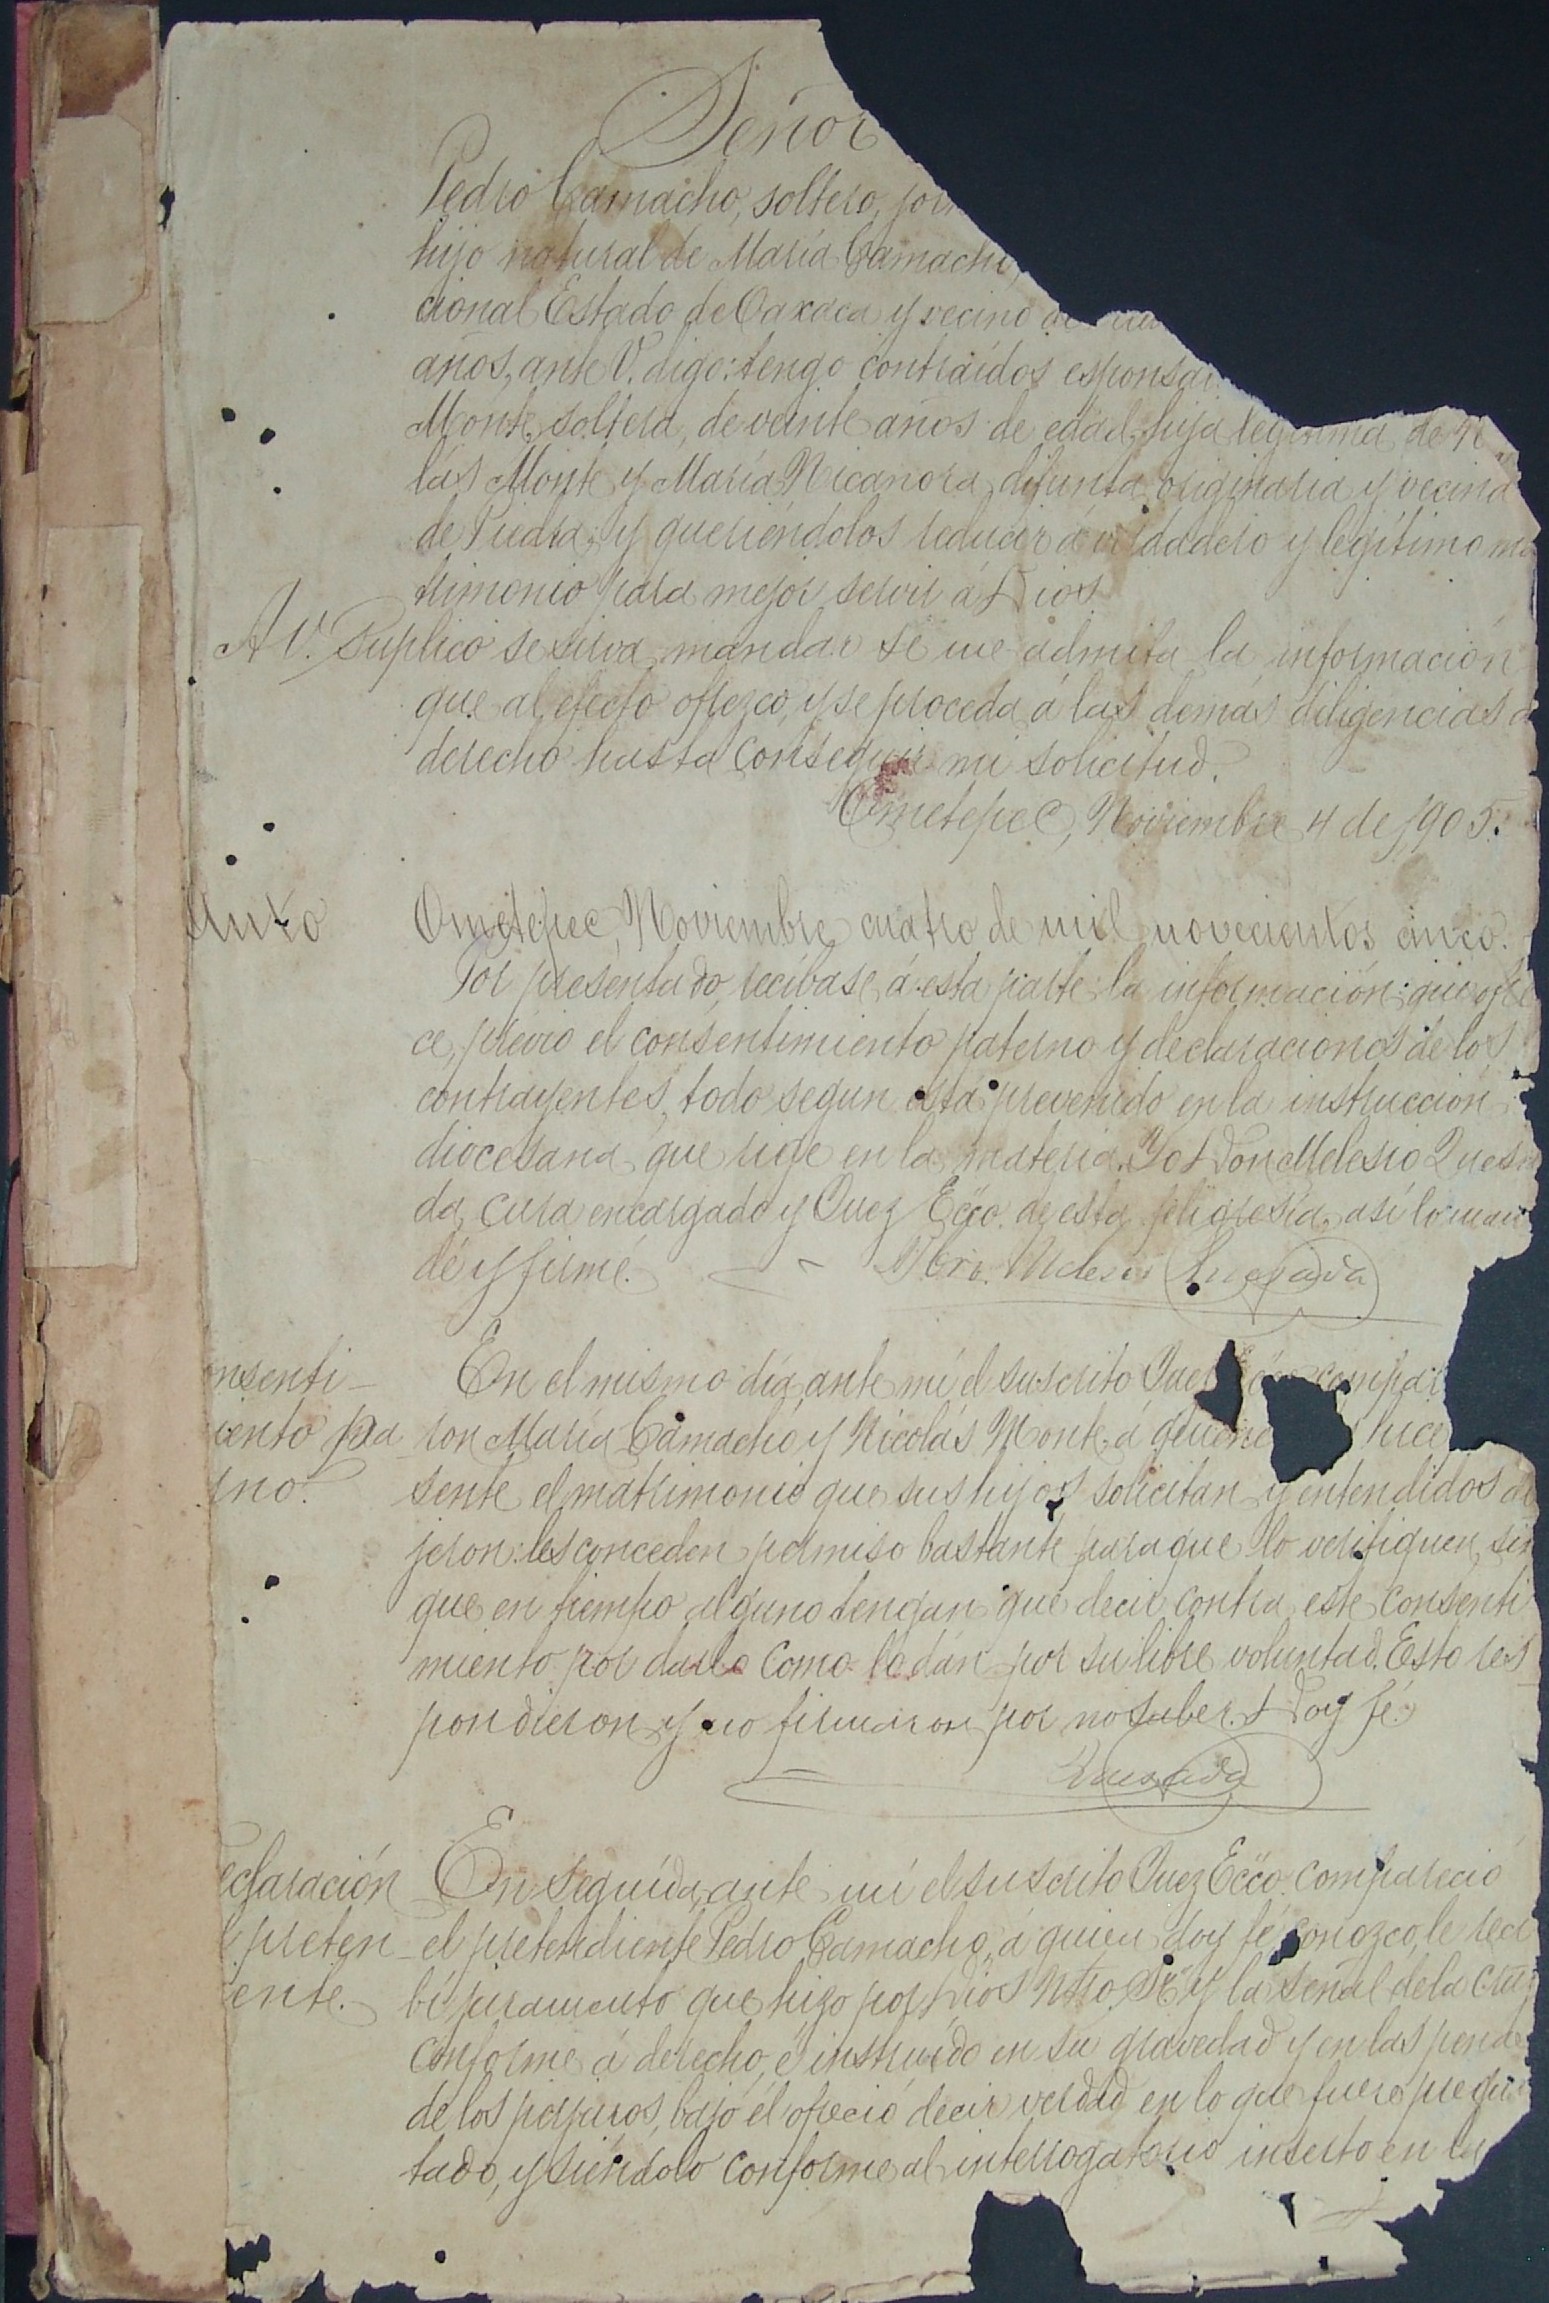 Señor
Pedro Camacho, soltero, jor
hijo natural de María Camacho,
cional Estado de Oaxaca y vecino de
años, ante V. digo: tengo contraídos esponsa
Monte, soltera, de veinte años de edad, hija legítima de Ni
lás Monte y María Nicanora, difunta, originaria y vecina
de Piedra; y queriéndolos reducir á verdadero y legítimo ma
trimonio para mejor servir á Dios
A V. Suplico se sirva mandar se me admita la información
que al efecto ofrezco, y se proceda á las demás diligencias d
derecho hasta conseguir mi solicitud.
Ometepec, Noviembre 4 de 1905.
Auto
Ometepec, Noviembre cuatro de mil novecientos cinco.
Por presentado, recíbase á esta parte la información que ofre
ce, prévio el consentimiento paterno y declaraciones de los
contrayentes, todo segun está prevenido en la instrucción
diocesana que rige en la materia. Yo Don Melesio Quesa
da, cura encargado y Juez Ecco. de esta feligresía, así lo man
dé y firmé.
Pbro. Melesio Quesada
nsenti-
iento pa
rno.
En el mismo día, ante mí el suscrito Juez compar
ron María Camacho y Nicolás Monte, á quiene hice
sente el matrimonio que sus hijos solicitan y entendidos di
jeron: les conceden permiso bastante para que lo verifiquen, sin
que en tiempo alguno tengan que decir contra este consenti
miento por darlo como lo dán por su libre voluntad. Esto res
pondieron y no firmaron por no saber. Doy fé.
Quesada
eclaración
l preten-
ente.
En seguida, ante mí el suscrito Juez Ecco. compareció
el pretendiente Pedro Camacho, á quien doy fé conozco, le reci
bí juramento que hizo por Dios Ntro. Sr. y la señal de la cruz
conforme á derecho, é instruido en su gravedad y en las penas
de los perjuros, bajo él ofreció decir verdad en lo que fuere pregun
tado, y siéndolo conforme al interrogatorio inserto en la